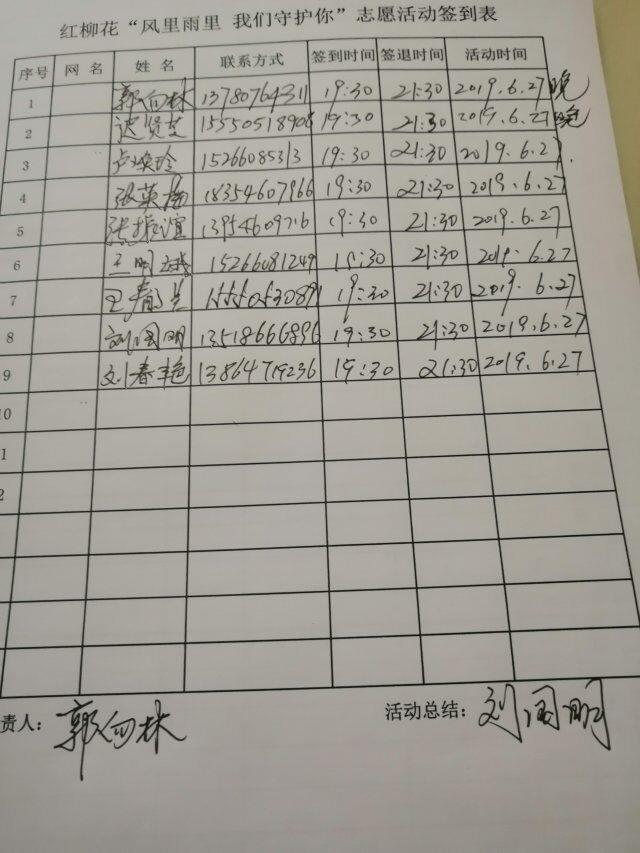 红柳花“风里雨里 我们守护你”志愿活动签到表
序号 网 名 姓 名 联系方式 签到时间 签退时间 活动时间
1 郭向林 13780764311 19:30 21:30 2019.6.27晚
2 贤芝 15550518908 19:30 21:30 2019.6.27晚
3 卢焕玲 152660853 19:30 21:30 2019.6.27.
4 张英梅 18354607966 19:30 21:30 2019.6.27
5 张振谊 1395460976 19:30 21:30 2019.6.27
6 王明 15266081249 19:30 21:30 2019.6.27
7 王春兰 19:30 21:30 2019.6.27
8 刘国明 13518666896 19:30 21:30 2019.6.27
9 刘春艳 13864719236 19:30 21:30 2019.6.27
10
1
2
责人: 郭向林 活动总结: 刘国明